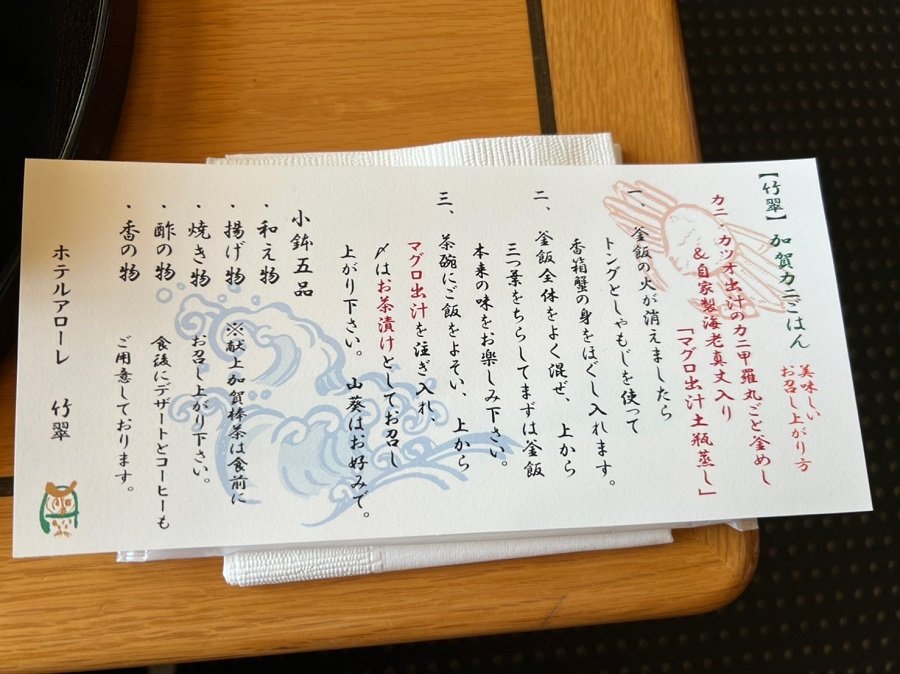 【竹翠】加賀カニごはん
美味しい
お召し上がり方
カニ、カツオ出汁のカニ甲羅丸ごと釜めし
&自家製海老真丈入り
「マグロ出汁土瓶蒸し」
一、釜飯の火が消えましたら
トングとしゃもじを使って
香箱蟹の身をほぐし入れます。
二、釜飯全体をよく混ぜ、上から
三つ葉をちらしてまずは釜飯
本来の味をお楽しみ下さい。
三、茶碗にご飯をよそい、上から
マグロ出汁を注ぎ入れ
〆はお茶漬けとしてお召し
上がり下さい。 山葵はお好みで。
小鉢五品
・和え物
・揚げ物
・焼き物
・酢の物
・香の物
※献上加賀棒茶は食前に
お召し上がり下さい。
食後にデザートとコーヒーも
ご用意しております。
ホテルアローレ 竹翠